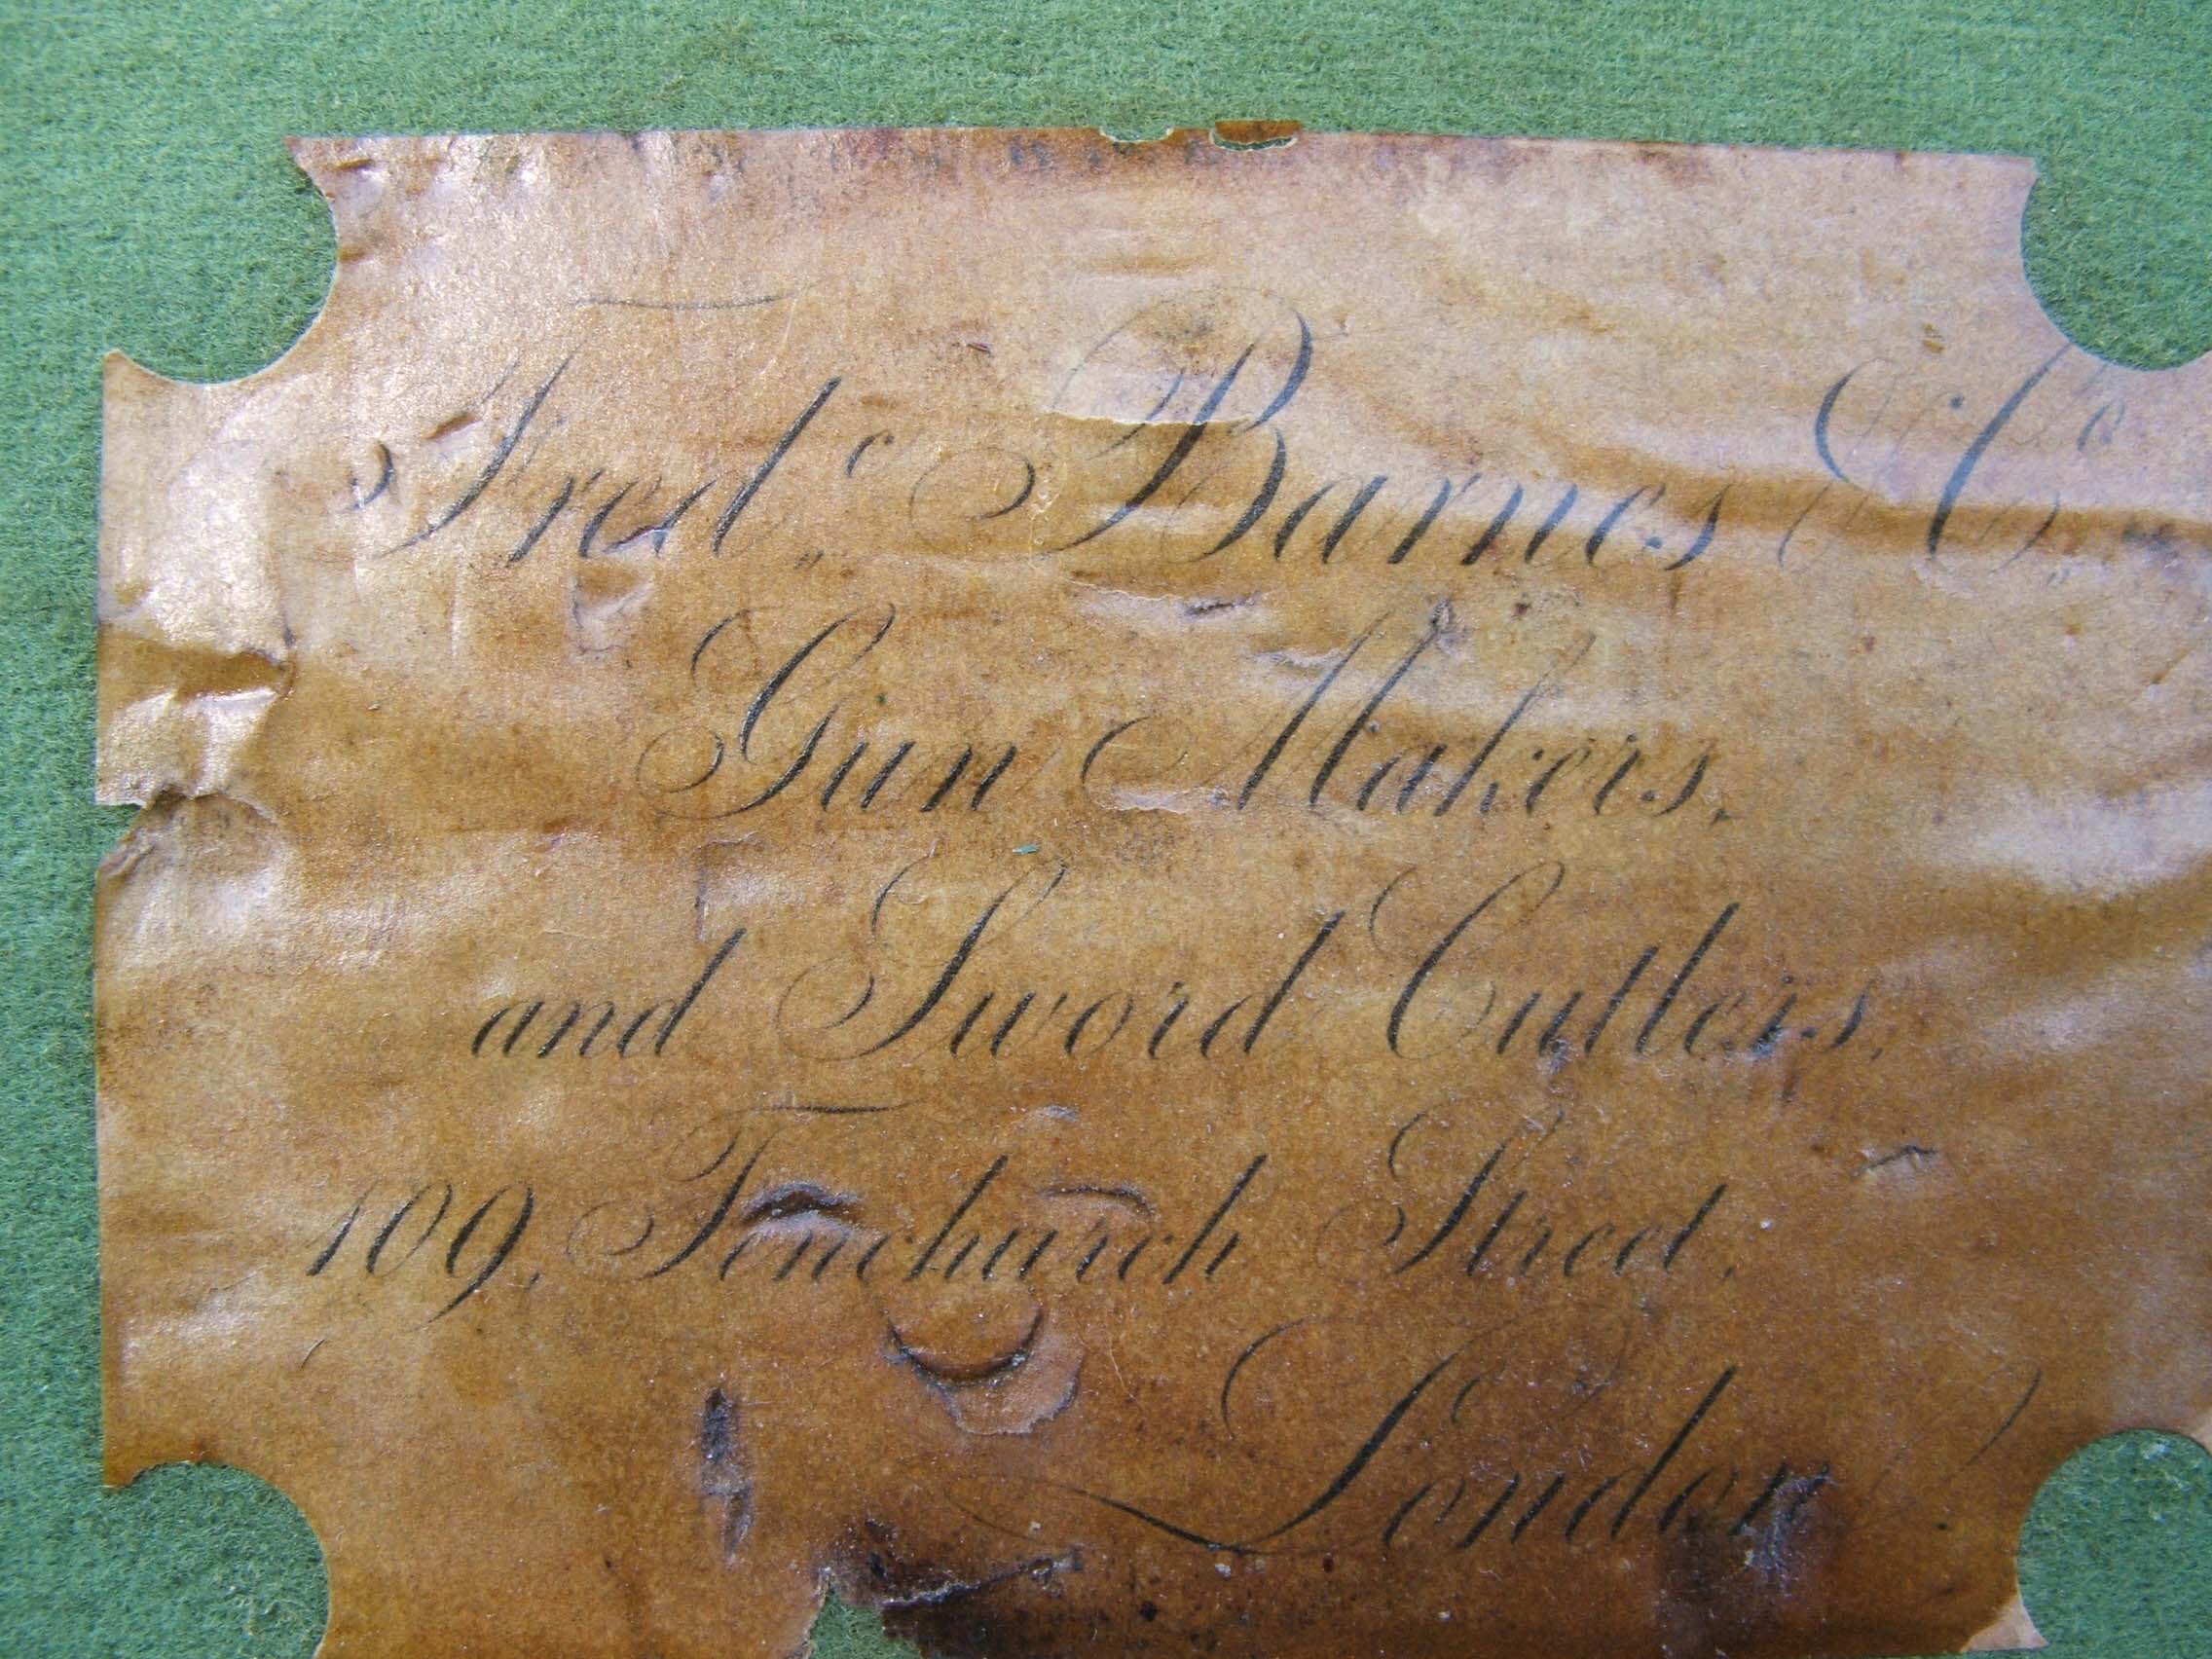 Fredc. Barnes & Co.
Gun Makers,
and Sword Cutlers,
109, Fenchurch Street,
London